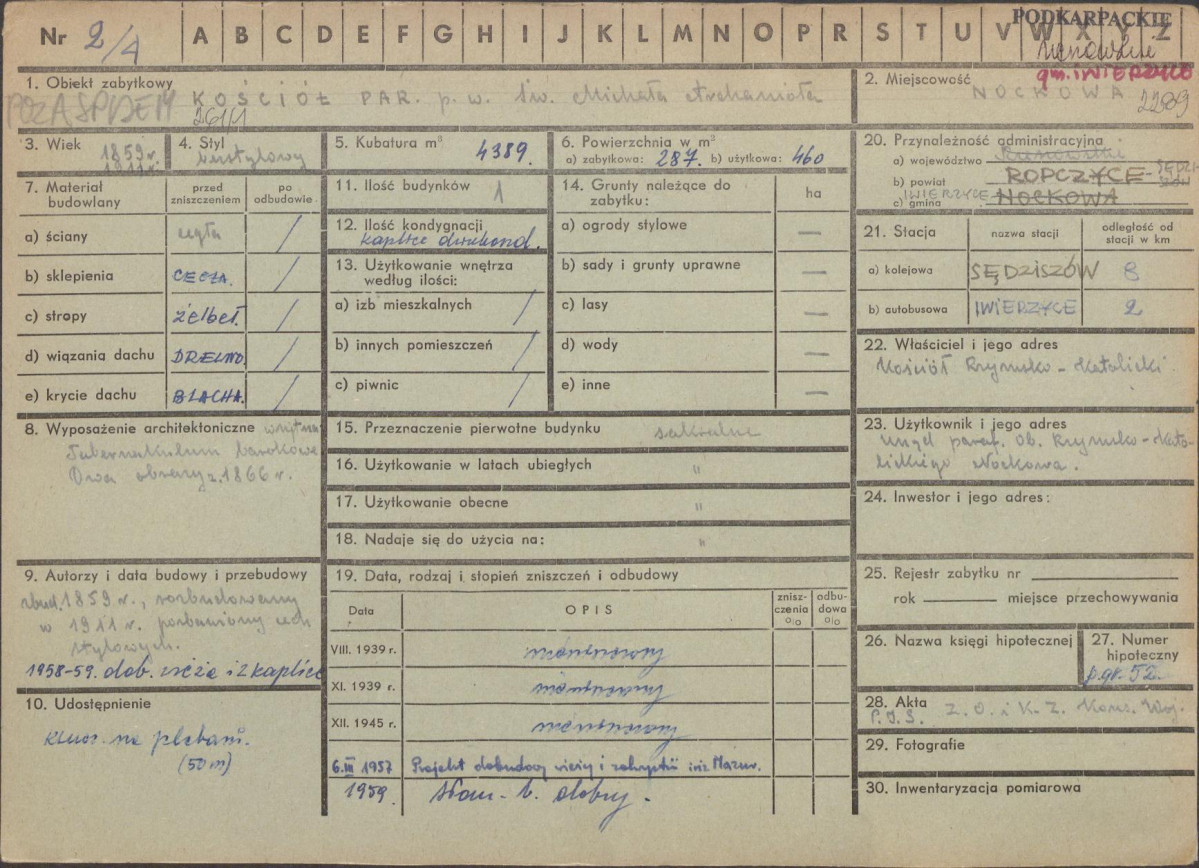 Nr 2/4 A B C D E F G H I J K L M N O P R S T U V W X Y Z
PODKARPACKIE
gm. IWIERZYCE
1. Obiekt zabytkowy
KOŚCIÓŁ PAR. p. w. św. Michała Archanioła
POZA SPISEM
2. Miejscowość
NOCKOWA 2289
3. Wiek 1859 r.
1911 r.
4. Styl
bezstylowy
5. Kubatura m³ 4389.
6. Powierzchnia w m²
a) zabytkowa: 287. b) użytkowa: 460
7. Materiał budowlany
przed zniszczeniem
po odbudowie
a) ściany cegła /
b) sklepienia CEGŁA. /
c) stropy żelbet. /
d) wiązania dachu DREWNO /
e) krycie dachu BLACHA. /
8. Wyposażenie architektoniczne wnętrza
Tabernakulum barokowe
Dwa obrazy z 1866 r.
9. Autorzy i data budowy i przebudowy
zbud. 1859 r., rozbudowany
w 1911 r. pozbawiony cech
stylowych.
1958-59. dob. wieża i 2 kaplice
10. Udostępnienie
klucz na plebani.
(50 m)
11. Ilość budynków 1
12. Ilość kondygnacji
kaplice dwukond.
13. Użytkowanie wnętrza
według ilości:
a) izb mieszkalnych /
b) innych pomieszczeń /
c) piwnic /
14. Grunty należące do
zabytku:
ha
a) ogrody stylowe —
b) sady i grunty uprawne —
c) lasy —
d) wody —
e) inne —
15. Przeznaczenie pierwotne budynku sakralne
16. Użytkowanie w latach ubiegłych "
17. Użytkowanie obecne "
18. Nadaje się do użycia na: "
19. Data, rodzaj i stopień zniszczeń i odbudowy
Data
OPIS
znisz-
czenia
%
odbu-
dowa
%
VIII. 1939 r.
XI. 1939 r.
XII. 1945 r.
6.III 1957 Projekt dobudowy wieży i zakrystii inż. Mazur.
1959. stan b. dobry.
20. Przynależność administracyjna
a) województwo Rzeszowskie
b) powiat ROPCZYCE
c) gmina IWIERZYCE NOCKOWA
21. Stacja
nazwa stacji
odległość od
stacji w km
a) kolejowa SĘDZISZÓW 8
b) autobusowa IWIERZYCE 2
22. Właściciel i jego adres
Kościół Rzymsko-Katolicki
23. Użytkownik i jego adres
Urząd paraf. Ob. Rzymsko-Kato-
lickiego Nockowa.
24. Inwestor i jego adres:
25. Rejestr zabytku nr
rok miejsce przechowywania
26. Nazwa księgi hipotecznej
27. Numer
hipoteczny
p.gr. 52.
28. Akta Z. O. i K. Z. Kons. Woj.
P.I.S.
29. Fotografie
30. Inwentaryzacja pomiarowa